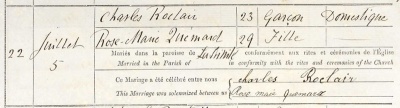 Charles Roclair 23 Garçon Domestique
22 Juillet 5 Rose-Marie Quemard 29 Fille
Mariés dans la paroisse de conformément aux rites et cérémonies de l'Église
Married in the Parish of in conformity with the rites and ceremonies of the Church
Ce Mariage a été célébré entre nous charles Roclair
This Marriage was solemnized between us Rose marie quemard